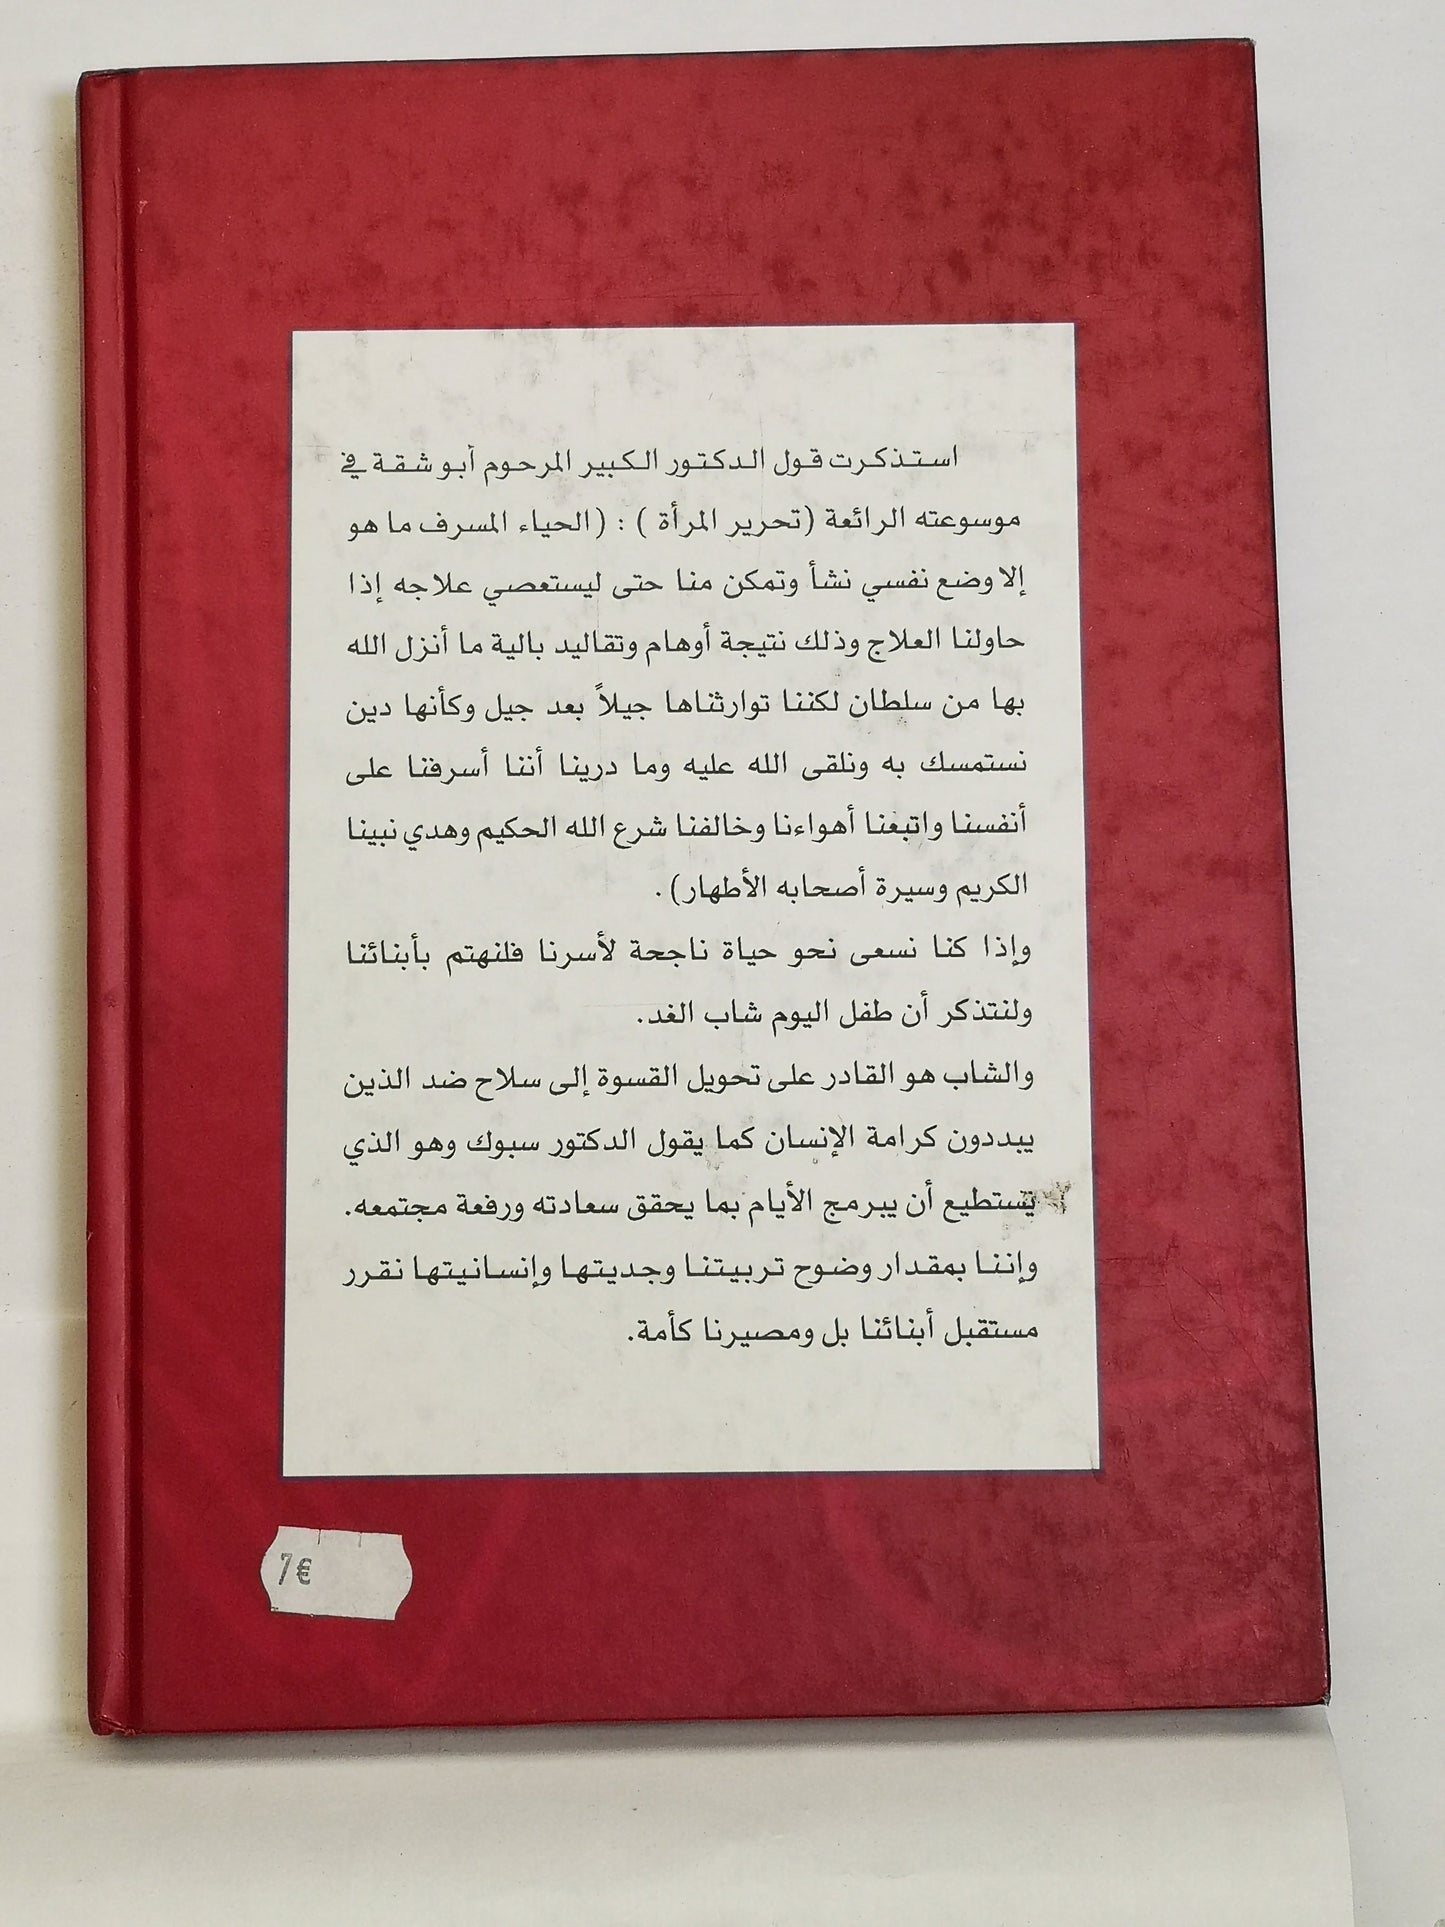 استذكرت قول الدكتور الكبير المرحوم أبو شقة في
موسوعته الرائعة (تحرير المرأة ) : (الحياء المسرف ما هو
إلا وضع نفسي نشأ وتمكن منا حتى ليستعصي علاجه إذا
حاولنا العلاج وذلك نتيجة أوهام وتقاليد بالية ما أنزل الله
بها من سلطان لكننا توارثناها جيلاً بعد جيل وكأنها دين
نستمسك به ونلقى الله عليه وما درينا أننا أسرفنا على
أنفسنا واتبعنا أهواءنا وخالفنا شرع الله الحكيم وهدي نبينا
الكريم وسيرة أصحابه الأطهار) .
وإذا كنا نسعى نحو حياة ناجحة لأسرنا فلنهتم بأبنائنا
ولنتذكر أن طفل اليوم شاب الغد.
والشاب هو القادر على تحويل القسوة إلى سلاح ضد الذين
يبددون كرامة الإنسان كما يقول الدكتور سبوك وهو الذي
يستطيع أن يبرمج الأيام بما يحقق سعادته ورفعة مجتمعه.
وإننا بمقدار وضوح تربيتنا وجديتها وإنسانيتها نقرر
مستقبل أبنائنا بل ومصيرنا كأمة.
7€